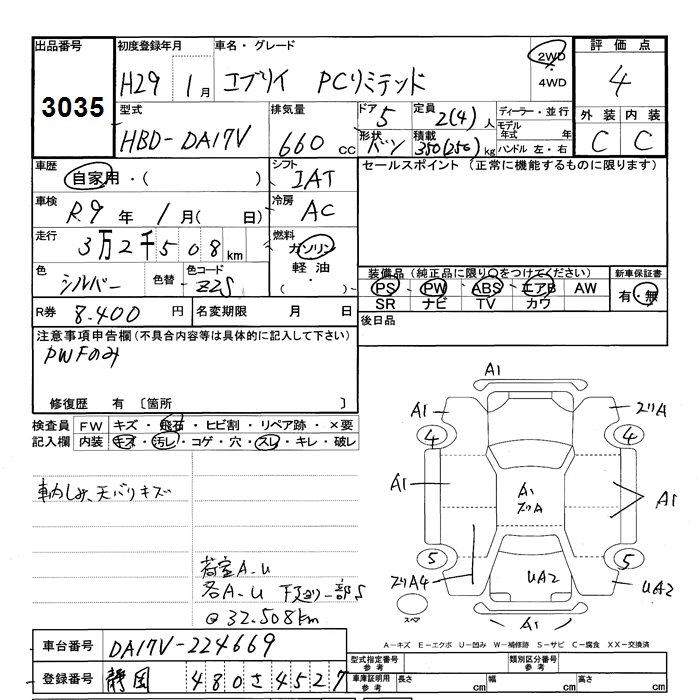 出品番号 初度登録年月 車名・グレード 2WD 4WD 評価点
3035 H29 1月 エブリイ PCリミテッド 4
型式 排気量 ドア 定員 ディーラー・並行 外装 内装
HBD-DA17V 660cc 5 2(4)人 モデル年式 年 C C
形状 バン 積載 350(250)kg ハンドル 左・右
車歴 自家用・( ) シフト IAT セールスポイント (正常に機能するものに限ります)
車検 R.9年 1月( 日) 冷房 AC
走行 3万2千508km 燃料 ガソリン 軽油 ・( )
色 シルバー 色替 色コード Z2S
装備品 (純正品に限り○をつけてください) 新車保証書
PS PW ABS エアB AW 有・無
SR ナビ TV カワ
R券 8.400円 名変期限 月 日 後日品
注意事項申告欄 (不具合内容等は具体的に記入して下さい)
PWFのみ
修復歴 有 〔箇所 〕
検査員 FW キズ・飛石・ヒビ割・リペア跡・×要
記入欄 内装 キズ・汚レ・コゲ・穴・スレ・キレ・破レ
車内しみ、天バリキズ
荷室A.U
各A.U 下廻り一部S
@32.508km
A1
A1
ズリA
4
4
A1
A1
ズリA
A1
5
5
ズリA4
UA2
UA2
スペア
A1
A-キズ E-エクボ U-凹み W-補修跡 S-サビ C-腐食 XX-交換済
車台番号 DA17V-224669 型式指定番号 参考 類別区分番号 参考
登録番号 静岡 480さ4527 車庫証明用 参考 長さ cm 幅 cm 高さ cm